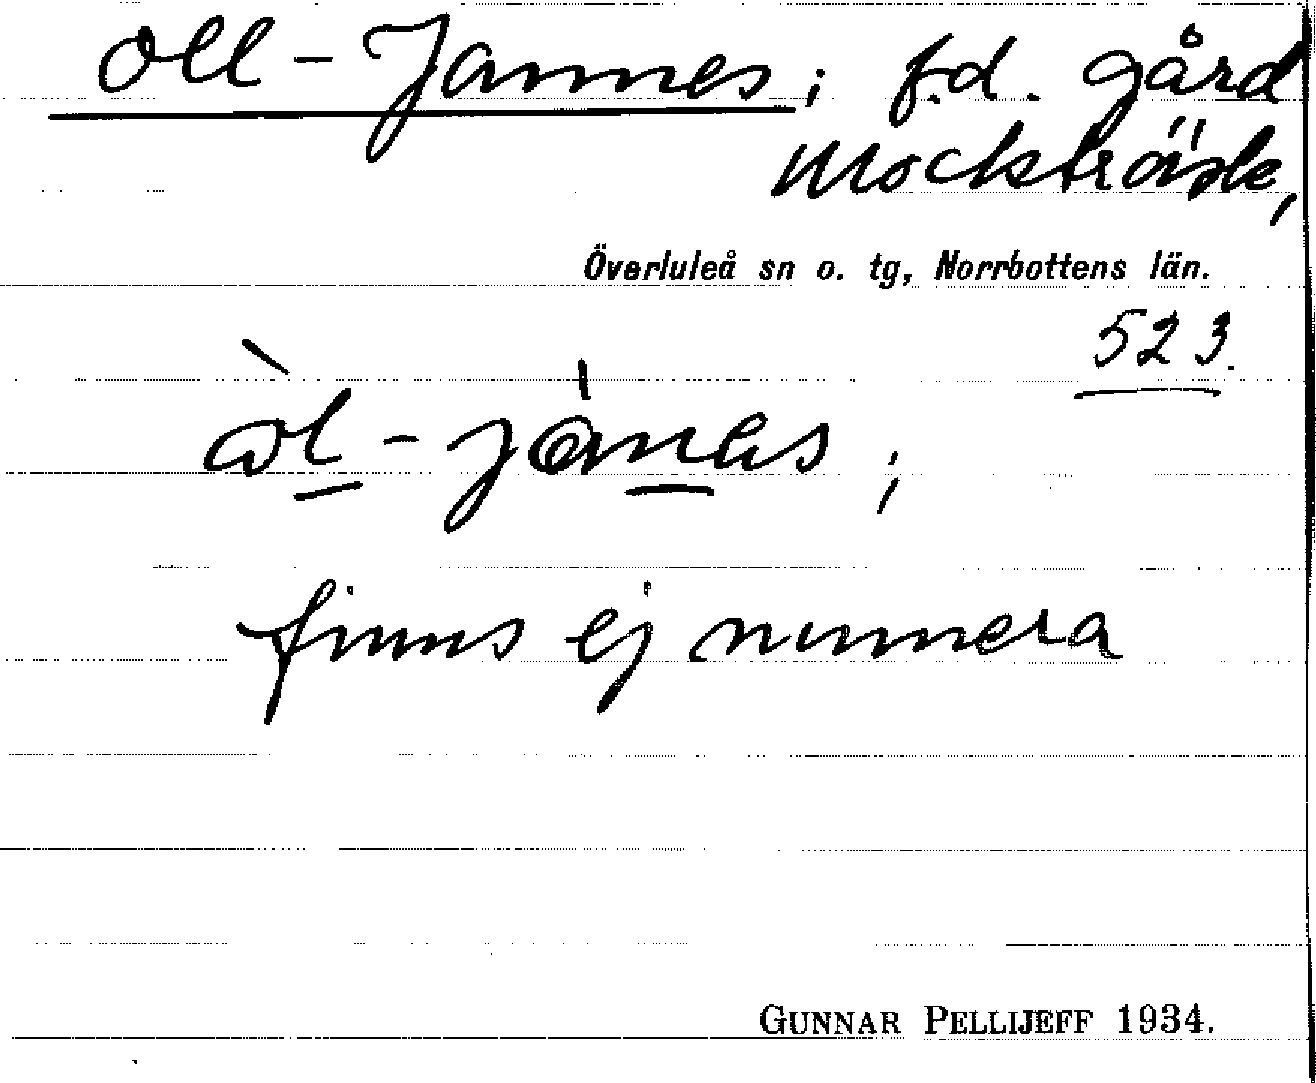 Oll-Jannes; f.d. gård
Mockträsk,
Överluleå sn o. tg, Norrbottens län.
523.
finns ej numera
GUNNAR PELLIJEFF 1934.